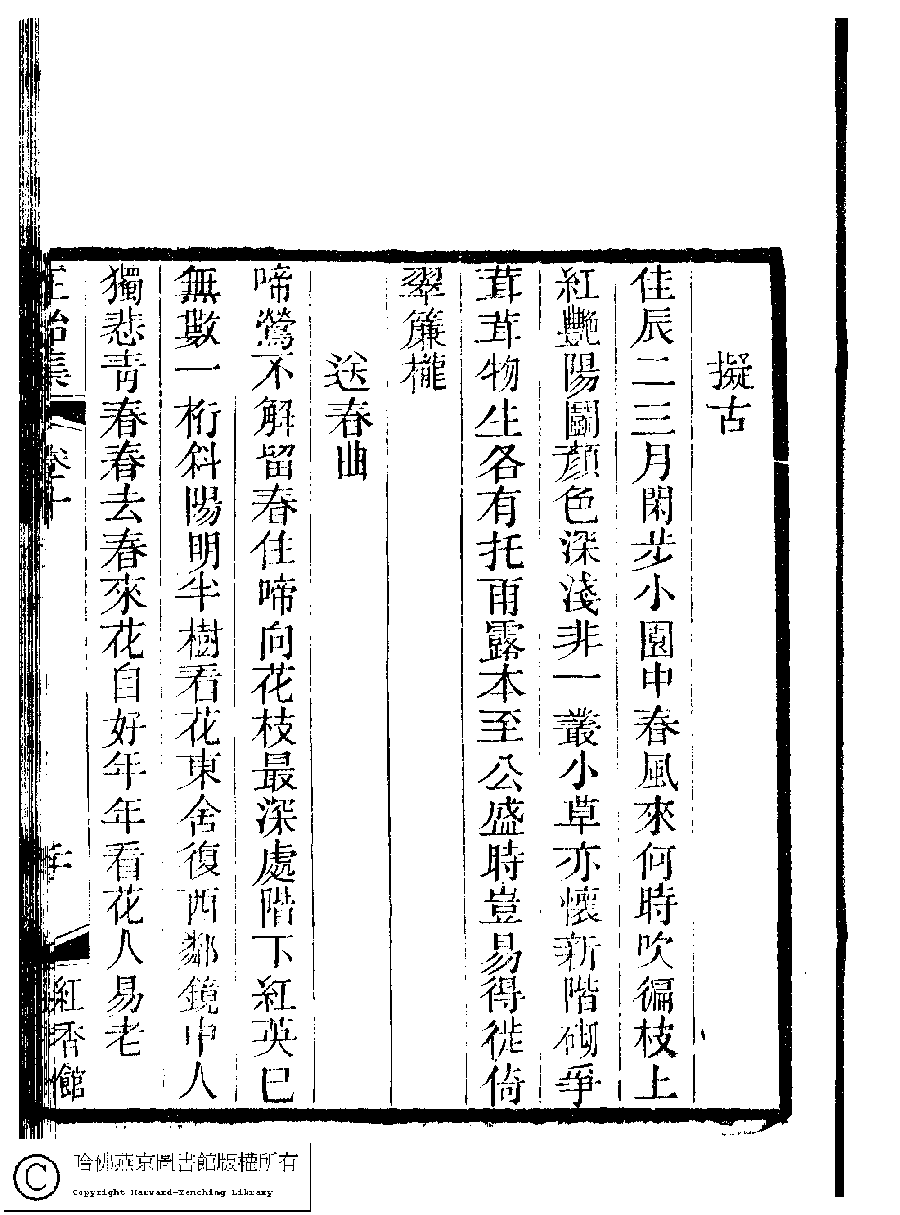 擬古
佳辰二三月閑步小園中春風來何時吹徧枝上
紅艷陽鬭顏色深淺非一叢小草亦懷新階砌爭
茸茸物生各有托雨露本至公盛時豈易得徙倚
翠簾櫳
送春曲
啼鶯不解留春住啼向花枝最深處階下紅英已
無數一桁斜陽明半樹看花東舍復西鄰鏡中人
獨悲靑春春去春來花自好年年看花人易老
正始集 卷十
紅香館
哈佛燕京圖書館版權所有
Copyright Harvard-Yenching Library